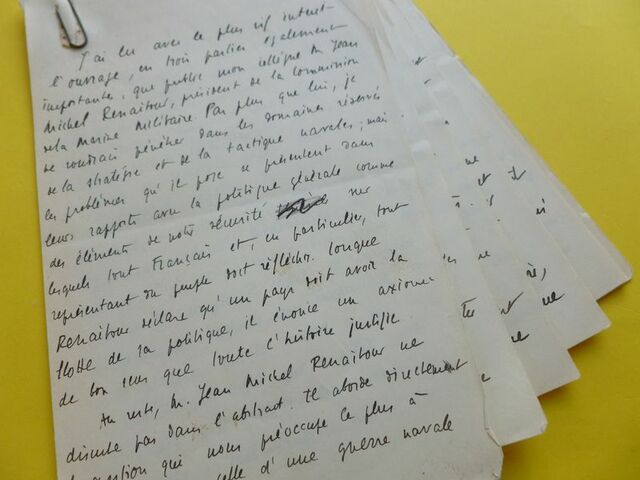 J'ai lu avec le plus vif intérêt
l'ouvrage, en trois parties également
importantes, que publie mon collègue M. Jean
Michel Renaitour, président de la Commission
de la Marine Militaire. Pas plus que lui, je
ne voudrais pénétrer dans les domaines réservés
de la stratégie et de la tactique navales ; mais
les problèmes qu'il pose se présentent dans
leurs rapports avec la politique générale comme
des éléments de notre sécurité sur
lesquels tout Français et, en particulier, tout
représentant du peuple doit réfléchir. Lorsque
Renaitour déclare qu'un pays doit avoir la
flotte de sa politique, il énonce un axiome
de bon sens que toute l'histoire justifie
Au reste, M. Jean Michel Renaitour ne
discute pas dans l'abstrait. Il aborde directement
la question qui nous préoccupe le plus à
celle d'une guerre navale